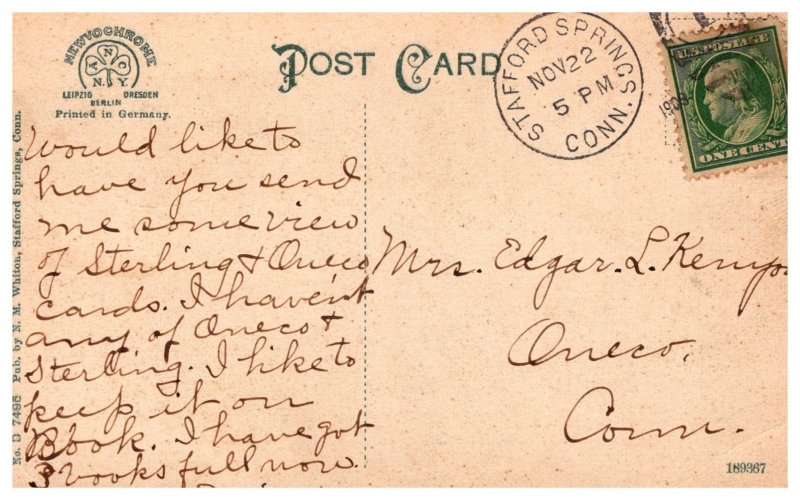 NEWVOCHROME
A N C
N.Y.
LEIPZIG DRESDEN
BERLIN
Printed in Germany.
POST CARD
STAFFORD SPRINGS,
NOV 22
5 PM
CONN.
1909
U.S. POSTAGE
ONE CENT
No. D 7496 Pub. by N. M. Whiton, Stafford Springs, Conn.
Would like to
have you send
me some view
of Sterling & Oneco
cards. I haven't
any of Oneco &
Sterling. I like to
keep it on
Book. I have got
3 books full now.
Mrs. Edgar. L. Kemp
Oneco,
Conn.
189367